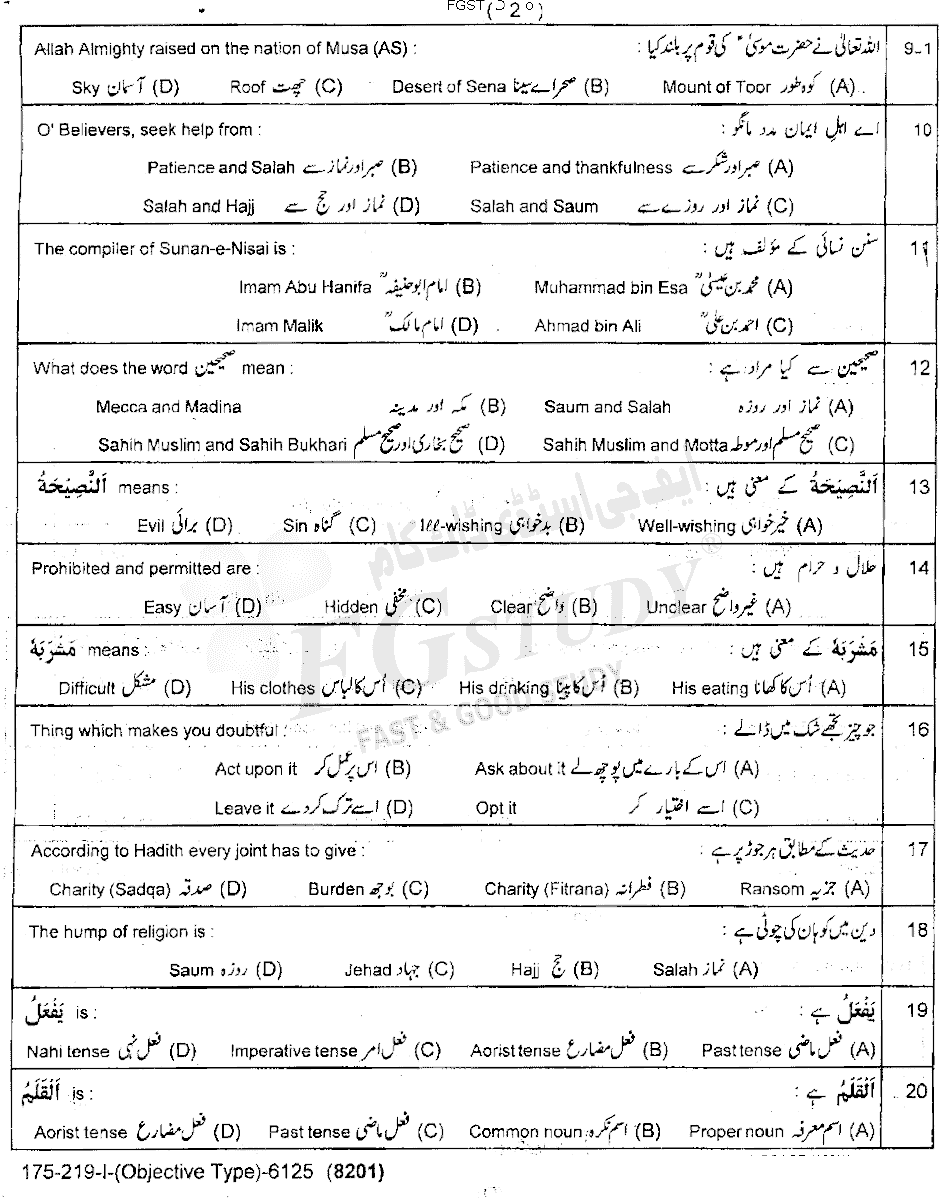 FGST
9-1 اللہ تعالیٰ نے حضرت موسیٰؑ کی قوم پر بلند کیا : Allah Almighty raised on the nation of Musa (AS) :
(A) کوہ طور Mount of Toor (B) صحرائے سینا Desert of Sena (C) چھت Roof (D) آسمان Sky
10 اے اہل ایمان مدد مانگو : O' Believers, seek help from :
(A) صبر اور شکر سے Patience and thankfulness (B) صبر اور نماز سے Patience and Salah
(C) نماز اور روزے سے Salah and Saum (D) نماز اور حج سے Salah and Hajj
11 سنن نسائی کے مؤلف ہیں : The compiler of Sunan-e-Nisai is :
(A) محمد بن عیسیٰؒ Muhammad bin Esa (B) امام ابو حنیفہؒ Imam Abu Hanifa
(C) احمد بن علیؒ Ahmad bin Ali (D) امام مالکؒ Imam Malik
12 صحیحین سے کیا مراد ہے : What does the word صحیحین mean :
(A) نماز اور روزہ Saum and Salah (B) مکہ اور مدینہ Mecca and Madina
(C) صحیح مسلم اور موطہ Sahih Muslim and Motta (D) صحیح بخاری اور صحیح مسلم Sahih Muslim and Sahih Bukhari
13 اَلنَّصِيْحَةُ کے معنی ہیں : اَلنَّصِيْحَةُ means :
(A) خیر خواہی Well-wishing (B) بدخواہی Ill-wishing (C) گناہ Sin (D) برائی Evil
14 حلال و حرام ہیں : Prohibited and permitted are :
(A) غیر واضح Unclear (B) واضح Clear (C) مخفی Hidden (D) آسان Easy
15 مَشْرَبَهٗ کے معنی ہیں : مَشْرَبَهٗ means :
(A) اُس کا کھانا His eating (B) اُس کا پینا His drinking (C) اُس کا لباس His clothes (D) مشکل Difficult
16 جو چیز تجھے شک میں ڈالے : Thing which makes you doubtful :
(A) اس کے بارے میں پوچھ لے Ask about it (B) اس پر عمل کر Act upon it
(C) اسے اختیار کر Opt it (D) اسے ترک کر دے Leave it
17 حدیث کے مطابق ہر جوڑ پر ہے : According to Hadith every joint has to give :
(A) جزیہ Ransom (B) فطرانہ Charity (Fitrana) (C) بوجھ Burden (D) صدقہ Charity (Sadqa)
18 دین میں کوہان کی چوٹی ہے : The hump of religion is :
(A) نماز Salah (B) حج Hajj (C) جہاد Jehad (D) روزہ Saum
19 يَفْعَلُ ہے : يَفْعَلُ is :
(A) فعل ماضی Past tense (B) فعل مضارع Aorist tense (C) فعل امر Imperative tense (D) فعل نہی Nahi tense
20 اَلْقَلَمُ ہے : اَلْقَلَمُ is :
(A) اسم معرفہ Proper noun (B) اسم نکرہ Common noun (C) فعل ماضی Past tense (D) فعل مضارع Aorist tense
175-219-I-(Objective Type)-6125 (8201)
ایف جی اسٹڈی ڈاٹ کام
FG STUDY ®
FAST & GOOD STUDY